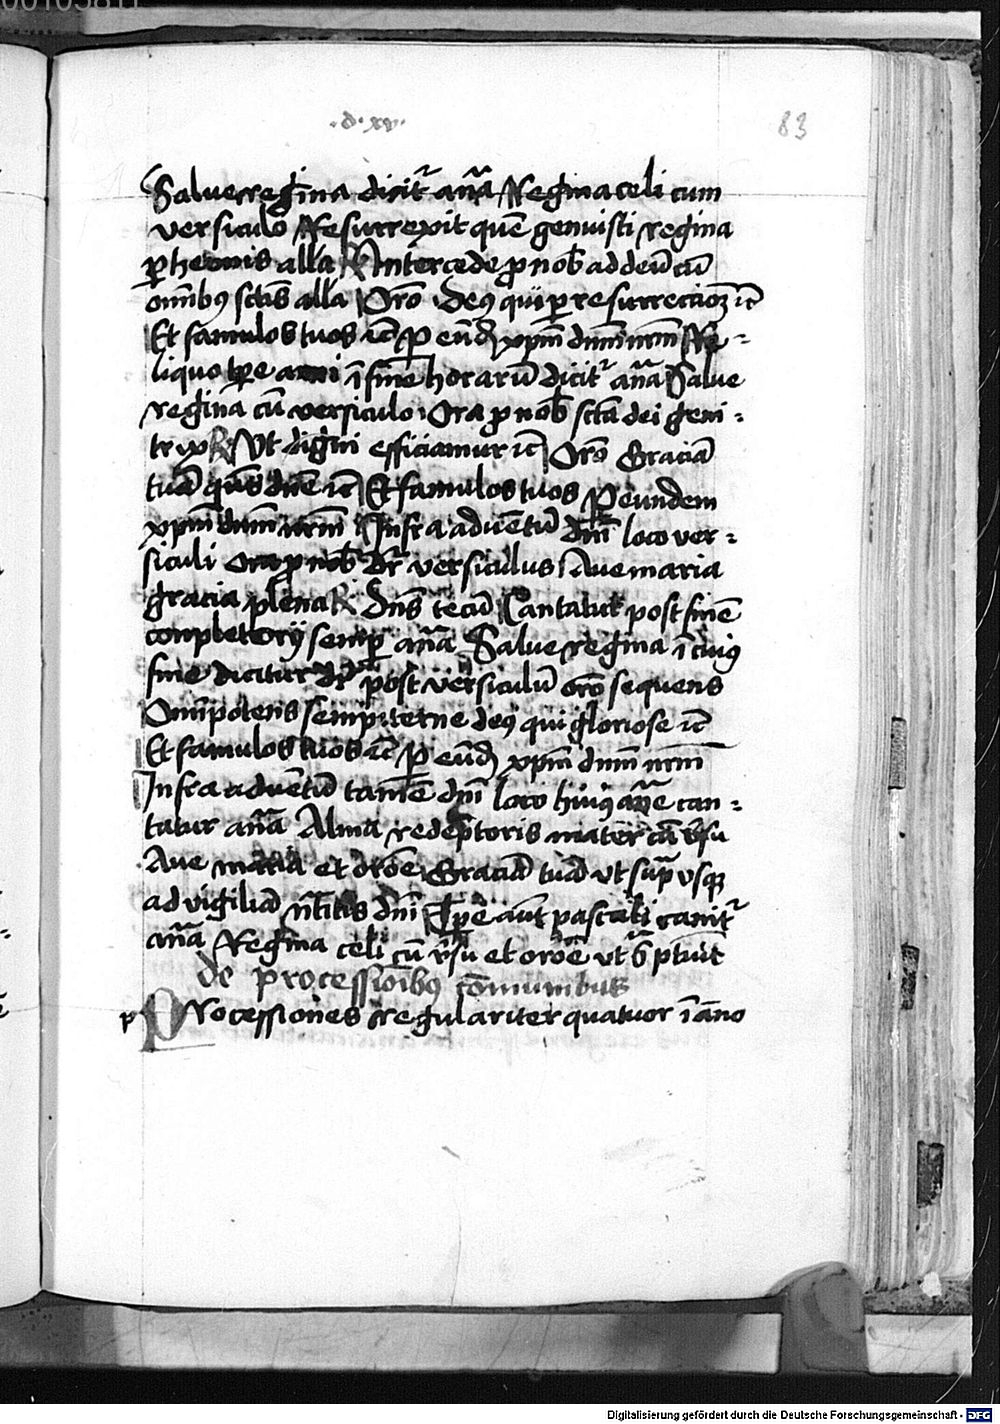 00105811
.d.xv.
83
Salue regina dicit᷑ an̄a Regina celi cum
versiculo Resurrexit quē genuisti regina
ꝑtheonis alla ℟ Intercede ꝓ nob̄ ad deū cū
om̄ibꝰ sctīs alla Oro Deꝰ qui ꝑ resurrectioꝫ ⁊c̄
Et famulos tuos ⁊c̄ ꝑ eūd xp̄m dn̄m nr̄m Re-
liquo tꝑe anni ī fine horarū dicit᷑ an̄a Salue
regina cū versiculo Ora ꝓ nob̄ sctā dei geni-
trix ℟ Vt digni efficiamur ⁊c̄ Oro Graciā
tuā qūs dn̄e ⁊c̄ Et famulos tuos Per eundem
xp̄m dn̄m nr̄m Infra aduentū dn̄i loco ver-
siculi Ora ꝓ nob̄ dr̄ versiculus Aue maria
gracia plena ℟ Dn̄s tecū Cantatur post finē
conpletorij semꝑ an̄a Salue regina ī cuiꝰ
fine dicitur post versiculū oro sequens
Om̄ipotens sempiterne deꝰ qui gloriose ⁊c̄
Et famulos tuos ⁊c̄ ꝑ eūd xp̄m dn̄m nr̄m
Infra aduentū tamē dn̄i loco huiꝰ an̄e can-
tatur an̄a Alma redēptoris mater cū v̄su
Aue maria et oroe Graciā tuā vt sup̄ vsqꝫ
ad vigiliā n̄titis dn̄i Tꝑe aut̄ pascali canit᷑
an̄a Regina celi cū v̄su et oroe vt sͣ ptuit
de processionibꝰ cōmunibus
p PRocessiones regulariter quatuor ī āno
Digitalisierung gefördert durch die Deutsche Forschungsgemeinschaft - DFG